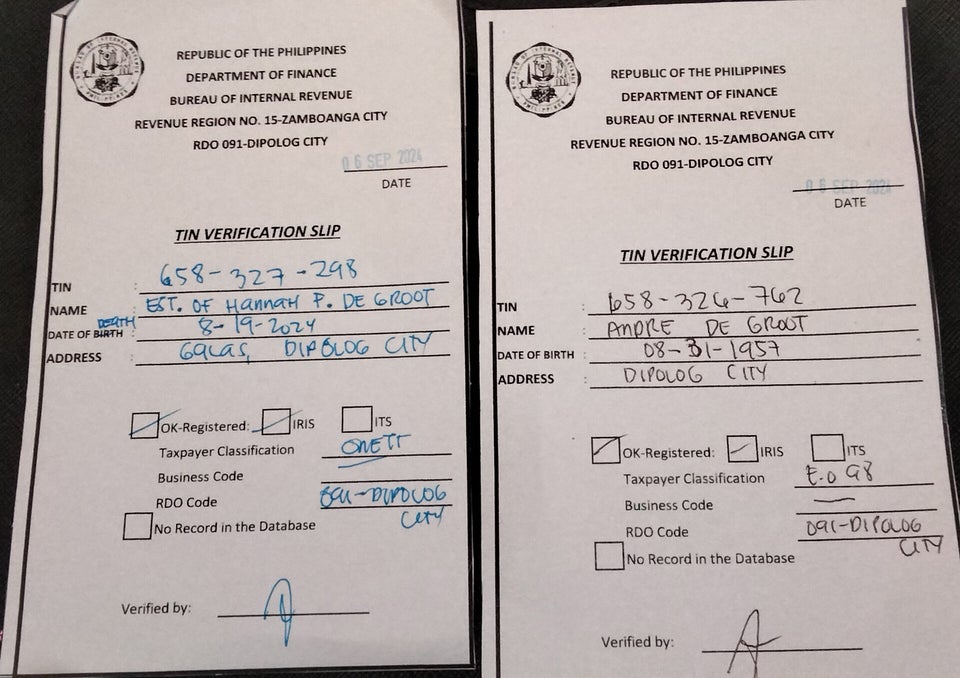 REPUBLIC OF THE PHILIPPINES
DEPARTMENT OF FINANCE
BUREAU OF INTERNAL REVENUE
REVENUE REGION NO. 15-ZAMBOANGA CITY
RDO 091-DIPOLOG CITY
06 SEP 2024
DATE
TIN VERIFICATION SLIP
TIN : 658-327-298
NAME : EST. OF HANNAH P. DE GROOT
DEATH
DATE OF BIRTH : 8-19-2024
ADDRESS : GALAS, DIPOLOG CITY
OK-Registered: IRIS ITS
Taxpayer Classification ONETT
Business Code
RDO Code 091-DIPOLOG
CITY
No Record in the Database
Verified by:
REPUBLIC OF THE PHILIPPINES
DEPARTMENT OF FINANCE
BUREAU OF INTERNAL REVENUE
REVENUE REGION NO. 15-ZAMBOANGA CITY
RDO 091-DIPOLOG CITY
06 SEP 2024
DATE
TIN VERIFICATION SLIP
TIN : 658-326-762
NAME : ANDRE DE GROOT
DATE OF BIRTH : 08-31-1957
ADDRESS : DIPOLOG CITY
OK-Registered: IRIS ITS
Taxpayer Classification E.O 98
Business Code —
RDO Code 091-DIPOLOG
CITY
No Record in the Database
Verified by: